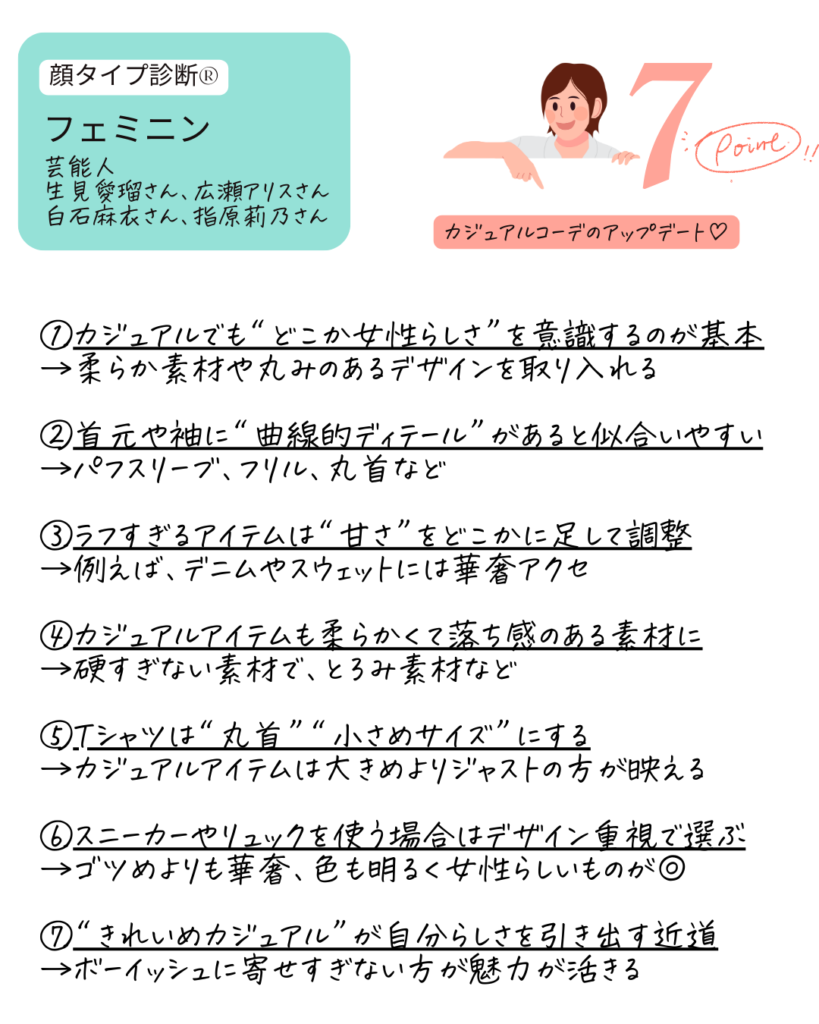 顔タイプ診断®
フェミニン
芸能人
生見愛瑠さん、広瀬アリスさん
白石麻衣さん、指原莉乃さん
7
Point!!
カジュアルコーデのアップデート♡
①カジュアルでも“どこか女性らしさ”を意識するのが基本
→柔らか素材や丸みのあるデザインを取り入れる
②首元や袖に“曲線的ディテール”があると似合いやすい
→パフスリーブ、フリル、丸首など
③ラフすぎるアイテムは“甘さ”をどこかに足して調整
→例えば、デニムやスウェットには華奢アクセ
④カジュアルアイテムも柔らかくて落ち感のある素材に
→硬すぎない素材で、とろみ素材など
⑤Tシャツは“丸首”“小さめサイズ”にする
→カジュアルアイテムは大きめよりジャストの方が映える
⑥スニーカーやリュックを使う場合はデザイン重視で選ぶ
→ゴツめよりも華奢、色も明るく女性らしいものが◎
⑦“きれいめカジュアル”が自分らしさを引き出す近道
→ボーイッシュに寄せすぎない方が魅力が活きる